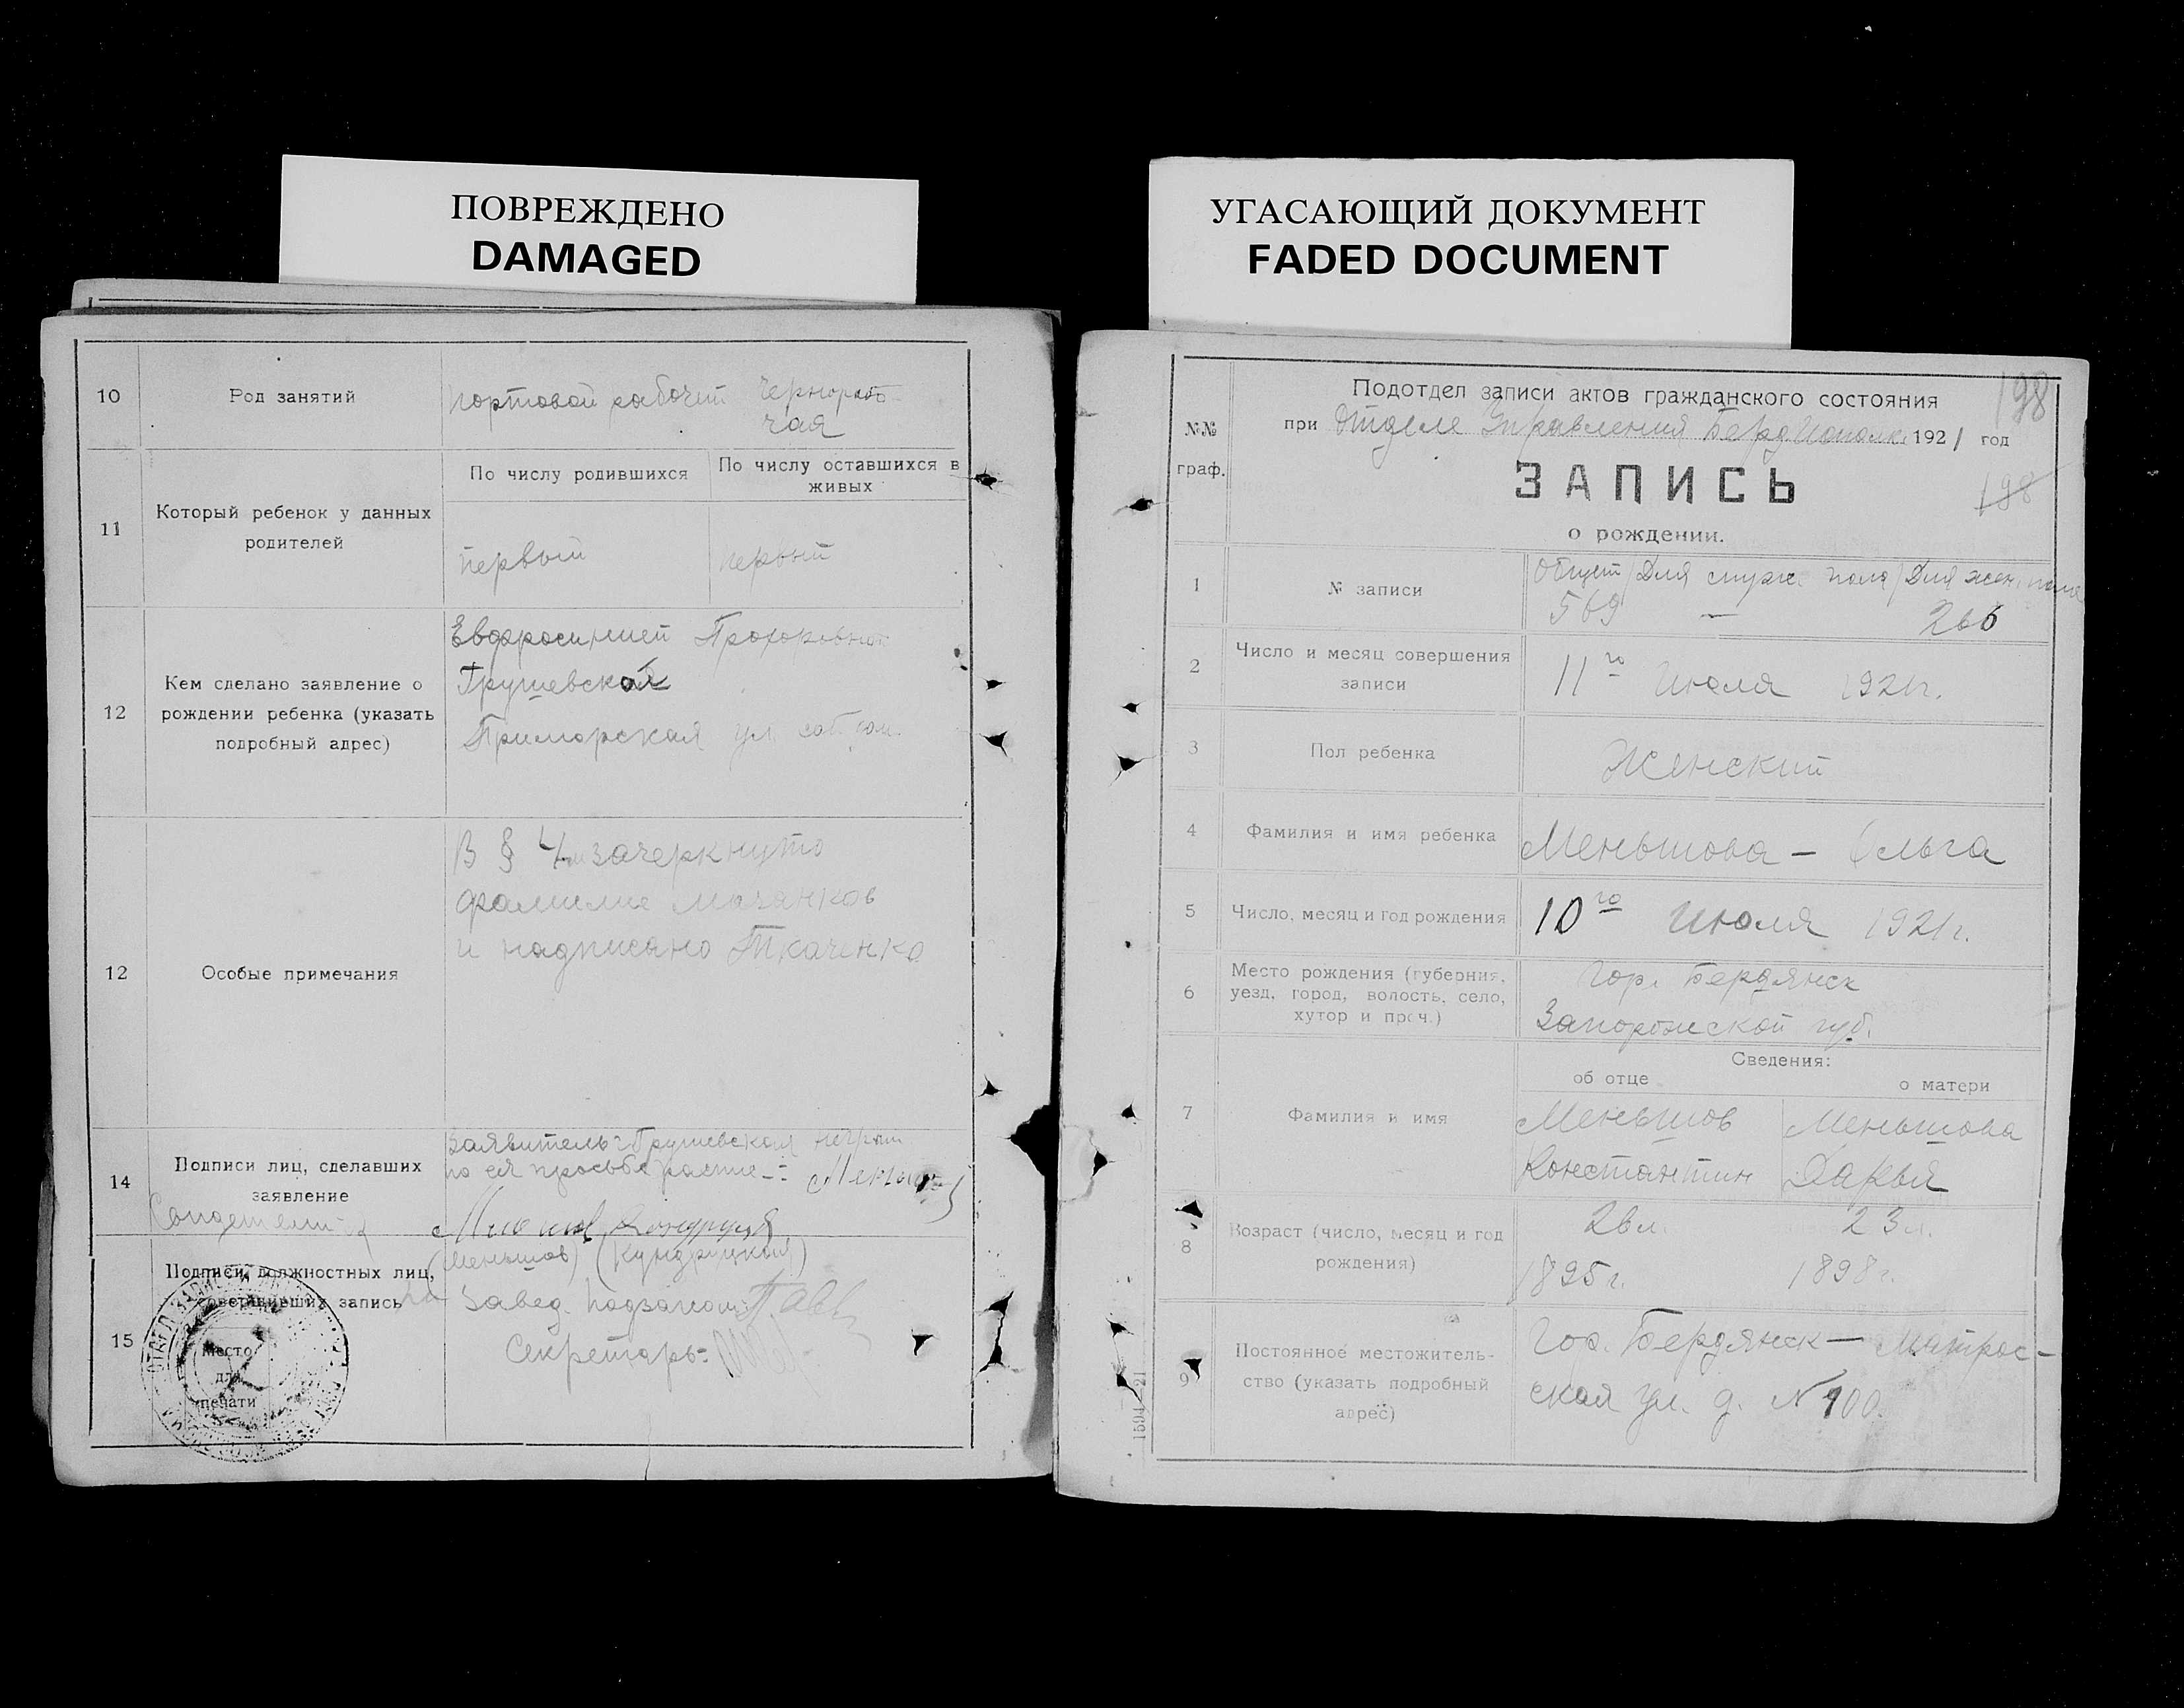 ПОВРЕЖДЕНО
DAMAGED
10
Род занятий
портовой рабочий
чернорабо-
чая
11
Который ребенок у данных
родителей
По числу родившихся
По числу оставшихся в
живых
первый
первый
12
Кем сделано заявление о
рождении ребенка (указать
подробный адрес)
Евфросинией
Грушевской
Приморская ул соб дом.
12
Особые примечания
В § 4м зачеркнуто
фамилие
и надписано Ткаченко
14
Подписи лиц, сделавших
заявление
Заявитель Грушевская неграм
по ея просьбе распис-:
(Меньшов) (Кундруцкий)
15
Подписи должностных лиц,
совершивших запись
Место
для
печати
Завед.
Секретарь:
УГАСАЮЩИЙ ДОКУМЕНТ
FADED DOCUMENT
198
№№
граф.
Подотдел записи актов гражданского состояния
при Отделе Управления 1921 год
ЗАПИСЬ
198
о рождении.
1
№ записи
Общий / Для мужс. пола / Для жен. пола
569 — 266
2
Число и месяц совершения
записи
11го Июля 1921г.
3
Пол ребенка
Женский
4
Фамилия и имя ребенка
Меньшова – Ольга
5
Число, месяц и год рождения
10го Июля 1921г.
6
Место рождения (губерния,
уезд, город, волость, село,
хутор и проч.)
Гор. Бердянск
Запорожской губ.
Сведения:
об отце
о матери
7
Фамилия и имя
Меньшов
Константин
Меньшова
Дарья
8
Возраст (число, месяц и год
рождения)
26л.
1895г.
23л.
1898г.
9
Постоянное местожитель-
ство (указать подробный
адрес)
Гор. Бердянск – Матрос-
ская ул. д. № 100.
1594—21